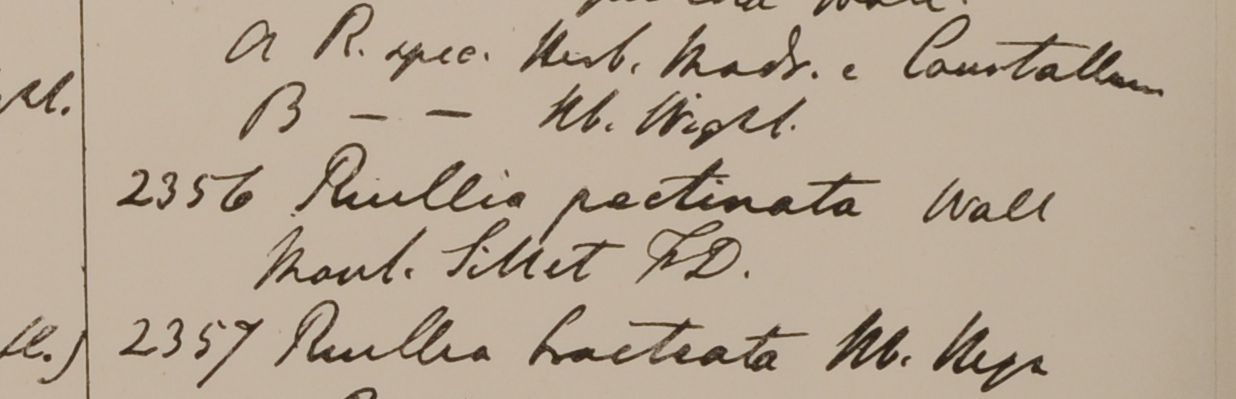 Wall.
a R. spec. Herb. Madr. e Courtallum
ght.
B — — Hb. Wight.
2356 Ruellia pectinata Wall
Mont. Sillet F.D.
2357 Ruellia bracteata Hb. Heyn